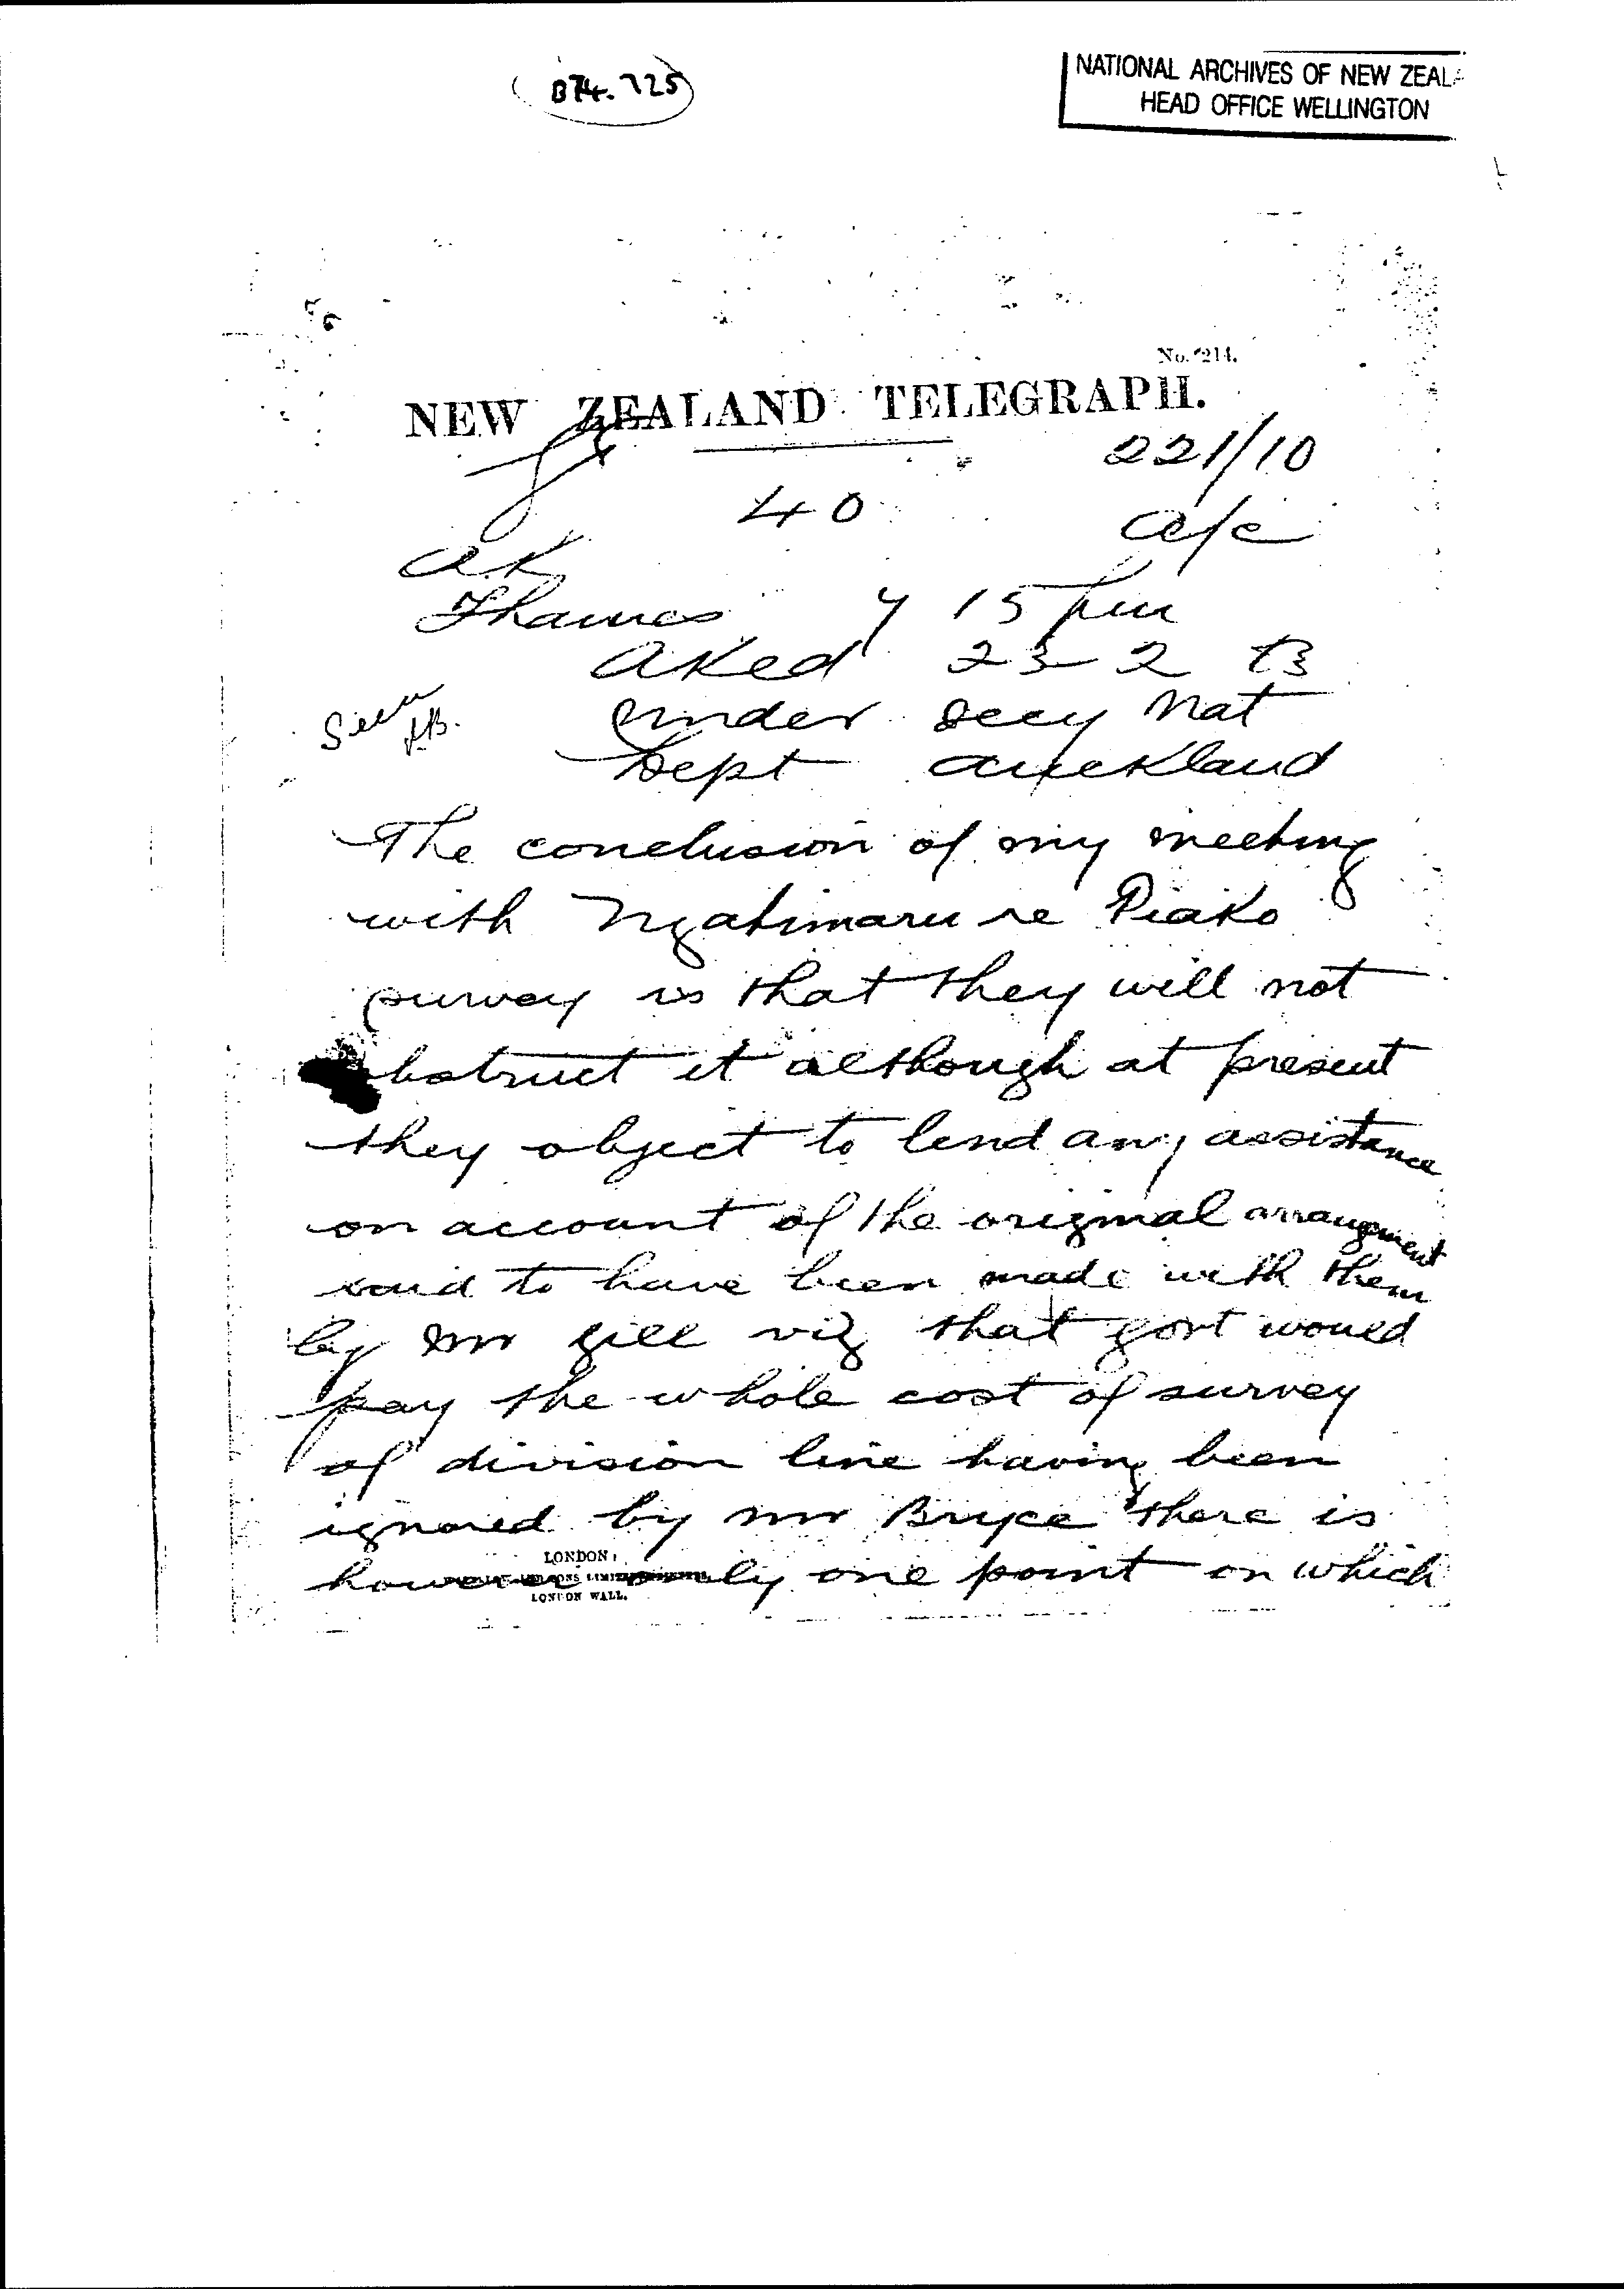 B74.725
NATIONAL ARCHIVES OF NEW ZEAL
HEAD OFFICE WELLINGTON
No. 214.
NEW ZEALAND TELEGRAPH.
221/10
40
a/c
AK
Thames 7 15 pm
AKed 23 2 83
Seen
under Secy Nat
Dept Auckland
The conclusion of my meeting
with Ngatimaru re Piako
survey is that they will not
obstruct it although at present
they object to lend any assistance
on account of the original arrangement
said to have been made with them
by Mr Gill viz that govt would
pay the whole cost of survey
of division line having been
ignored by Mr Bryce there is
however only one point on which
LONDON
LONDON WALL.